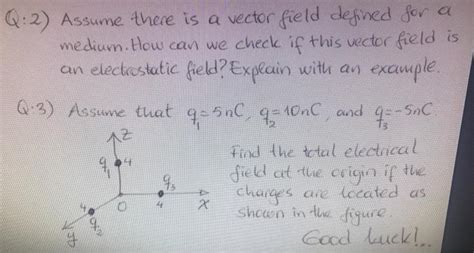 Q:2) Assume there is a vector field defined for a
medium. How can we check if this vector field is
an electrostatic field? Explain with an example.
Q.3) Assume that q₁=5nC, q₂=10nC, and q₃=-5nC.
z
q₁ 4
Find the total electrical
field at the origin if the
q₃
charges are located as
4 O 4 x
shown in the figure.
q₂
y
Good luck!..